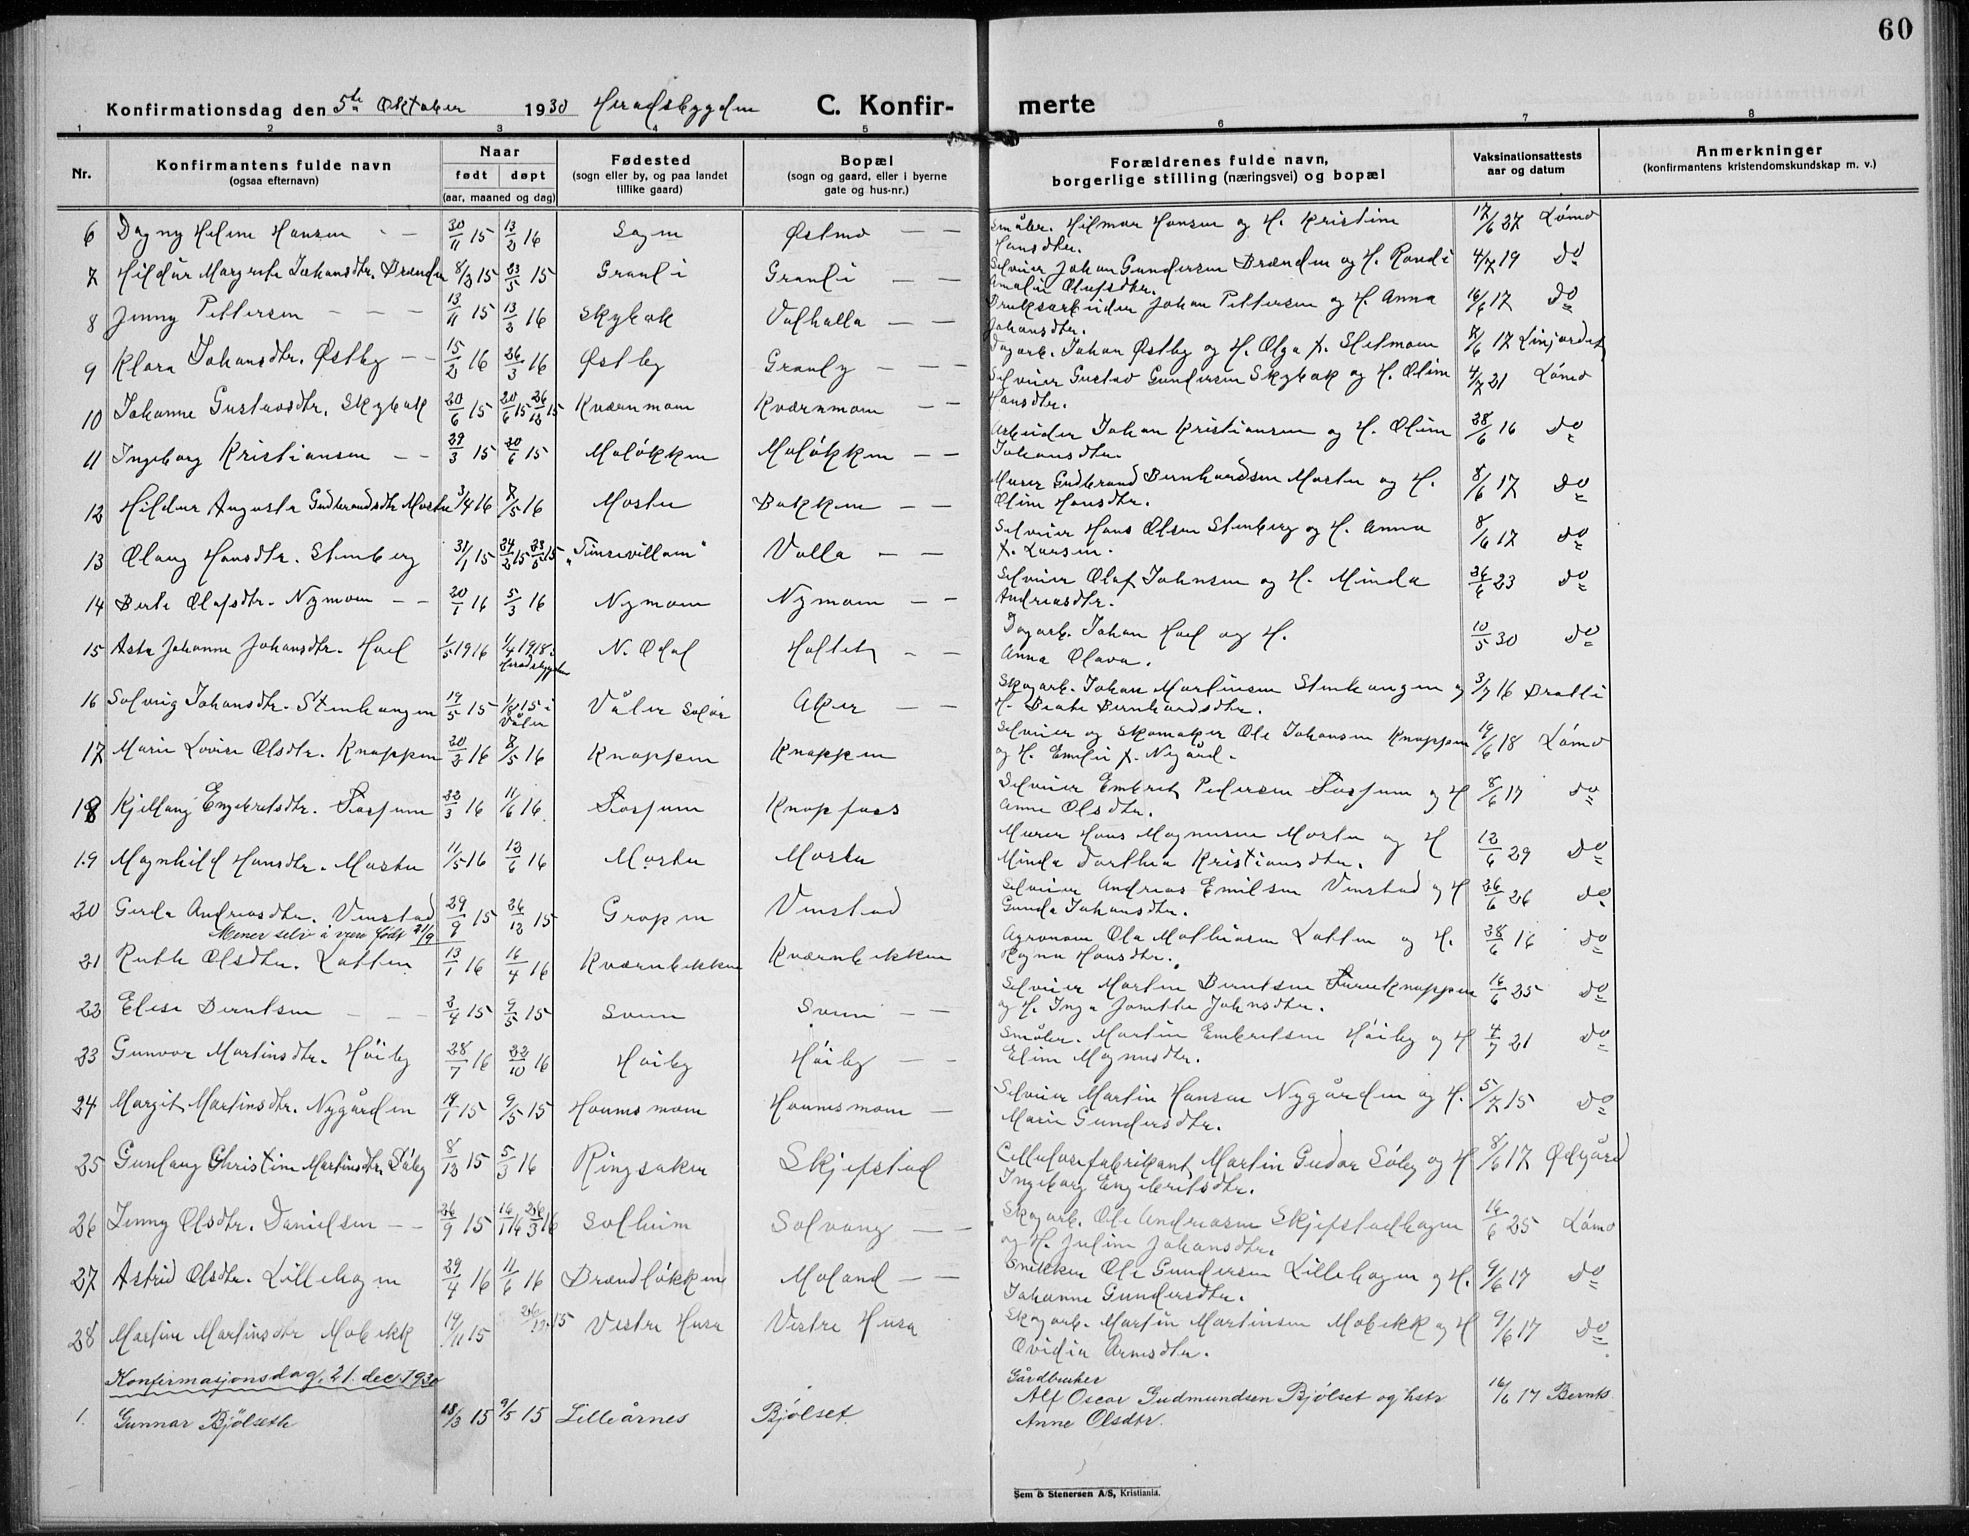 60
Konfirmationsdag den 5te Oktober 1930 Heradsbygden C. Konfir- merte
1 2 3 4 5 6 7 8
Nr. Konfirmantens fulde navn (ogsaa efternavn) Naar født døpt (aar, maaned og dag) Fødested (sogn eller by, og paa landet tillike gaard) Bopæl (sogn og gaard, eller i byerne gate og hus-nr.) Forældrenes fulde navn, borgerlige stilling (næringsvei) og bopæl Vaksinationsattests aar og datum Anmerkninger (konfirmantens kristendomskundskap m. v.)
6 Dagny Helene Hansen - - 30/11 15 13/2 16 Sagen Østmo - - Småbr. Hilmar Hansen og H. Kristine Hansdtr. 17/6 27 Lömo
7 Hildur Margrete Johansdtr. Brænden 8/2 15 23/5 15 Granli Granli - - Selveier Johan Gundersen Brænden og H. Randi Amalie Olufsdtr. 4/7 19 do
8 Jenny Pettersen - - - 13/11 15 13/2 16 Skybak Valhalla - - Bruksarbeider Johan Pettersen og H. Anna Johansdtr. 16/6 17 do
9 Klara Johansdtr. Østby - - 15/2 16 26/3 16 Østby Granly - - - Dagarb. Johan Østby og H. Olga f. Sletmoen 8/6 17 Linjordet
10 Johanne Gustavsdtr. Skybak 20/6 15 20/6 15 26/12 15 Kværnmoen Kværnmoen - - Selveier Gustav Gundersen Skybak og H. Oline Hansdtr. 4/7 21 Lömo
11 Ingeborg Kristiansen - - 29/3 15 20/6 15 Moløkken Moløkken - - Arbeider Johan Kristiansen og H. Oline Johansdtr. 28/6 16 do
12 Hildur Augusta Gudbrandsdtr Mosten 3/4 16 7/5 16 Mosten Bakken - - Murer Gudbrand Bernhardsen Mosten og H. Oline Hansdtr. 8/6 17 do
13 Olaug Hansdtr. Stenberg 31/1 15 24/2 15 23/5 15 Valla - - Selveier Hans Olsen Stenberg og H. Anna f. Larsen. 8/6 17 do
14 Berte Olafsdtr. Nymoen - - 20/1 16 5/3 16 Nymoen Nymoen - - Selveier Olaf Johnsen og H. Minda Andreasdtr. 26/6 23 do
15 Asta Johanne Johansdtr. Hoel 1/5 1916 1/4 1918 i Heradsbygden N. Odal Holtet - - Dagarb. Johan Hoel og H. Anna Olava. 10/5 30 do
16 Solveig Johansdtr. Stenhaugen 19/5 15 1/8 15 i Våler Våler Solør Aker - - Skogarb. Johan Martinsen Stenhaugen og H. Beate Bernhardsdtr. 3/7 16 Bratli
17 Marie Lovise Olsdtr. Knappen 20/2 16 8/5 16 Knappen Knappen Selveier og skomaker Ole Johansen Knappen og H. Emilie f. Nygård. 19/6 18 Lömo
18 Kjellaug Engebretsdtr. Fossum 22/3 16 11/6 16 Fossum Knapfoss Selveier Embret Pedersen Fossum og H Anne Olsdtr. 8/6 17 do
19 Magnhild Hansdtr. Mosten 11/5 16 12/6 16 Mosten Mosten Murer Hans Magnussen Mosten og H Minda Dorthea Kristiansdtr. 12/6 29 do
20 Gerda Andreasdtr. Vinstad 29/9 15 26/12 15 Gropen Vinstad Selveier Andreas Emilsen Vinstad og H Gunda Johansdtr. 26/6 26 do
Mener selv å være født 21/9
21 Ruth Olsdtr. Lutten 13/1 16 16/4 16 Kværnbekken Kværnbekken Agronom Ole Mathiasen Lutten og H. Ragna Hansdtr. 28/6 16 do
22 Elise Berntsen - - - 3/4 15 9/5 15 Sveen Sveen - - Selveier Martin Berntsen Furuknappen og H. Inga Josette Johnsdtr. 16/6 25 do
23 Gunvor Martinsdtr. Höiby 28/7 16 22/10 16 Höiby Höiby - - Småbr. Martin Embretsen Höiby og H Eline Magnusdtr. 4/7 21 do
24 Margit Martinsdtr. Nygården 14/1 15 9/5 15 Hounsmoen Hounsmoen - Selveier Martin Hansen Nygården og H. Marie Gundersdtr. 5/7 15 do
25 Gunlaug Christine Martinsdtr. Söby 8/12 15 5/3 16 Ringsaker Skjefstad Cellulosefabrikant Martin Gudar Söby og H Ingeborg Engebretsdtr. 8/6 17 Ødegård
26 Jenny Olsdtr. Danielsen - - 26/9 15 16/1 16 26/3 16 Solheim Solvang - - Skogarb. Ole Andreasen Skjefstadhagen og H. Juline Johansdtr. 16/6 25 Lömo
27 Astrid Olsdtr. Lillehagen 29/4 16 11/6 16 Brændløkken Moland - - Snekker Ole Gundersen Lillehagen og H. Johanne Gundersdtr. 9/6 17 do
28 Martine Martinsdtr Mobekk 19/11 15 26/12 15 Vestre Husa Vestre Husa Skogarb. Martin Martinsen Mobekk og H Ovidia Arnesdtr. 9/6 17 do
Konfirmasjonsdag, 21. dec. 1930
1. Gunnar Bjölseth 18/3 15 9/5 15 Lilleårnes Bjølset. Gårdbruker Alf Oscar Gudmundsen Bjølset og hstr Anne Olsdtr. 16/6 17 Bernts
Sem & Stenersen A/S, Kristiania.